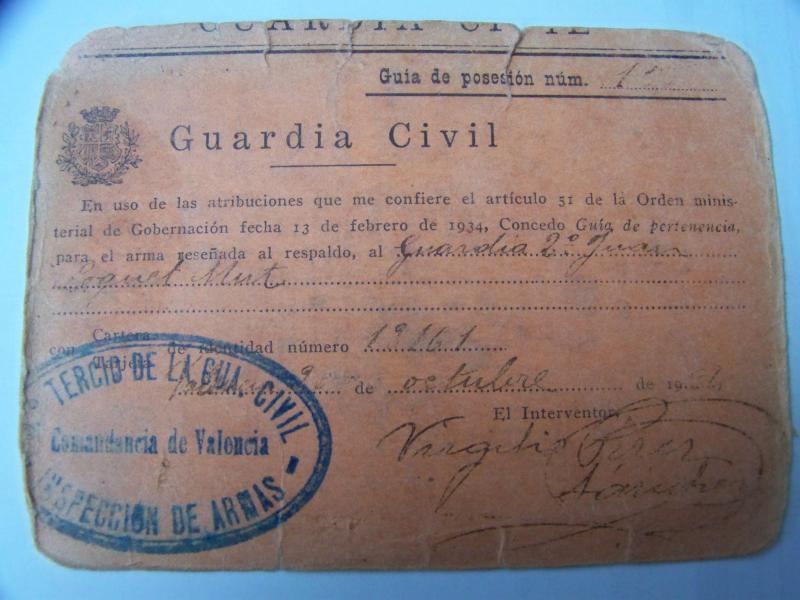 GUARDIA CIVIL
Guía de posesión núm.
Guardia Civil
En uso de las atribuciones que me confiere el artículo 51 de la Orden minis-
terial de Gobernación fecha 13 de febrero de 1934, Concedo Guía de pertenencia,
para el arma reseñada al respaldo, al Guardia 2º Juan
Mut
Cartera
con de identidad número 19161
Tarjeta
de octubre de 19
El Interventor,
Virgilio Perez
TERCIO DE LA GUA. CIVIL
Comandancia de Valencia
INSPECCIÓN DE ARMAS